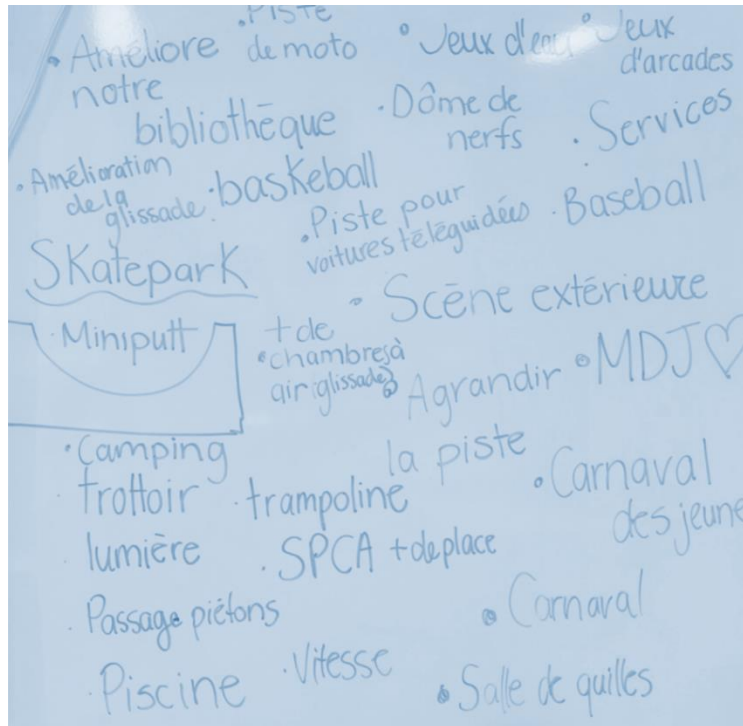 • Améliore
notre
bibliothèque
• Piste
de moto
• Jeux d'eau
• Jeux
d'arcades
• Dôme de
nerfs
• Services
• Amélioration
de la
glissade
• baskeball
• Piste pour
voitures téléguidées
• Baseball
Skatepark
• Scène extérieure
• Miniputt
+ de
• chambres à
air glissade
• Agrandir
la piste
• MDJ ♡
• Camping
• trottoir
• trampoline
• Carnaval
des jeune
• lumière
• SPCA + de place
• Passage piétons
• Carnaval
• Piscine
• Vitesse
• Salle de quilles